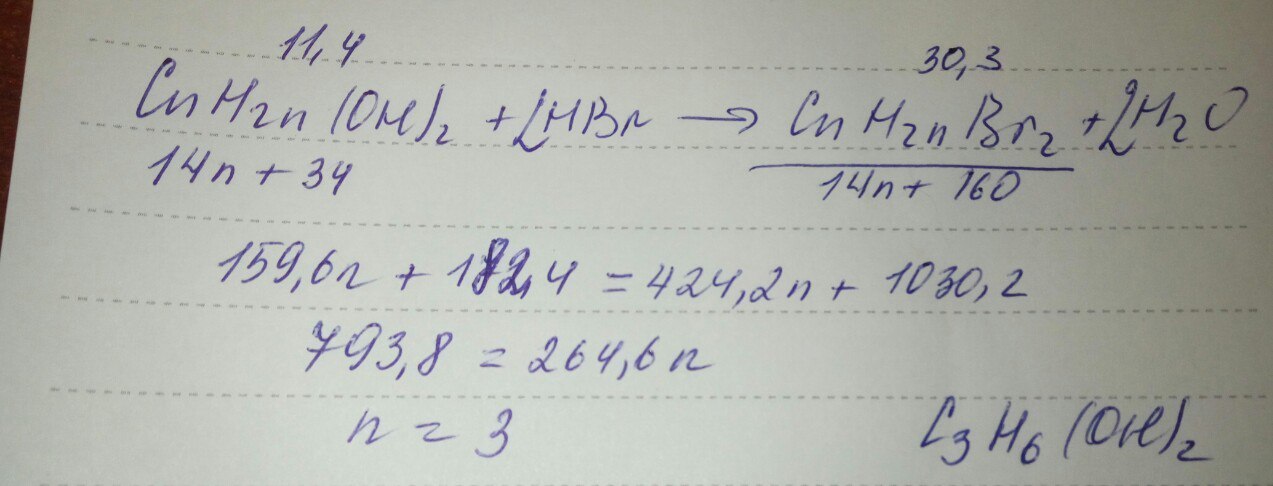 11,4 30,3
CnH₂n(OH)₂ + 2HBr → CnH₂nBr₂ + 2H₂O
14n + 34 14n + 160
159,6n + 1824 = 424,2n + 1030,2
793,8 = 264,6n
n = 3 C₃H₆(OH)₂